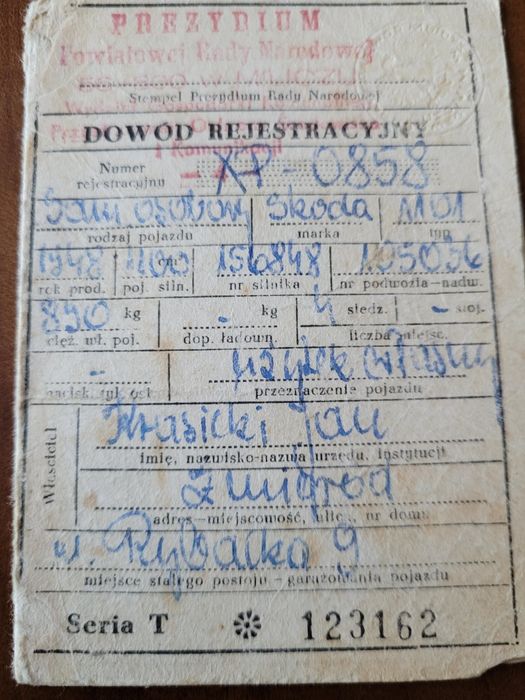 PREZYDIUM
Powiatowej Rady Narodowej
Stempel Prezydium Rady Narodowej
DOWÓD REJESTRACYJNY
i Komunikacji
Numer rejestracyjny XP-0858
Sam. osobowy Skoda 1101
rodzaj pojazdu marka typ
1948 1100 cm³ 156848 105036
rok prod. poj. siln. nr silnika nr podwozia-nadw.
890 kg - kg 4 siedz. - stoj.
cięż. wł. poj. dop. ładown. liczba miejsc
- użytek własny
nacisk tyl. osi przeznaczenie pojazdu
Właściciel
Krasicki Jan
imię, nazwisko-nazwa urzędu, instytucji
Żmigród
adres-miejscowość, ulica, nr domu
ul. Rybacka 9
miejsce stałego postoju - garażowania pojazdu
Seria T ✻ 123162